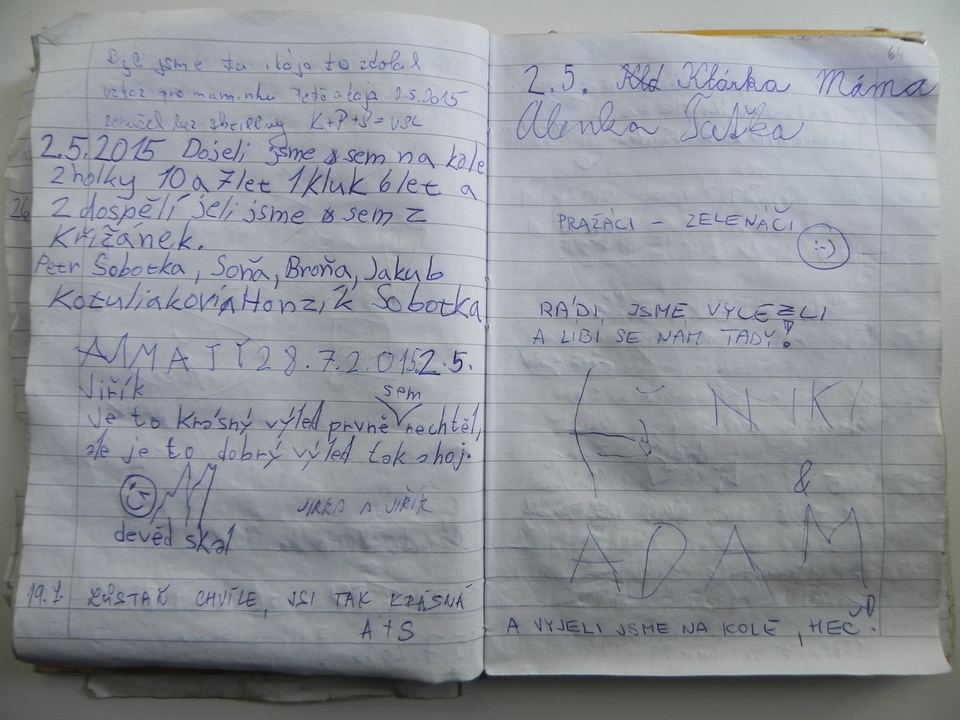 Byli jsme tu i kája to zdolal
vzkaz pro maminku Péťa a kája 2.5.2015
K+P+S=
2.5.2015 Dojeli jsme sem na kole
2 holky 10 a 7let 1 kluk 6let a
26 2 dospělí jeli jsme sem z
Křižánek.
Petr Sobotka, Soňa, Broňa, Jakub
Kotuliakovi, Honzík Sobotka
2.5.
Jiřík
sem
Je to krásný výled prvně nechtěl,
ale je to dobrý výled tak ahoj.
JIRKA A JIŘÍK
devěd skal
19.7. ZŮSTAŇ CHVÍLE, JSI TAK KRÁSNÁ
A+S
64
2.5. Klárka Máma
Alenka Taťka
PRAŽÁCI - ZELENÁČI :-)
RÁDI JSME VYLEZLI
A LIBI SE NÁM TADY!
NIKI
&
ADAM
A VYJELI JSME NA KOLE, HEČ!